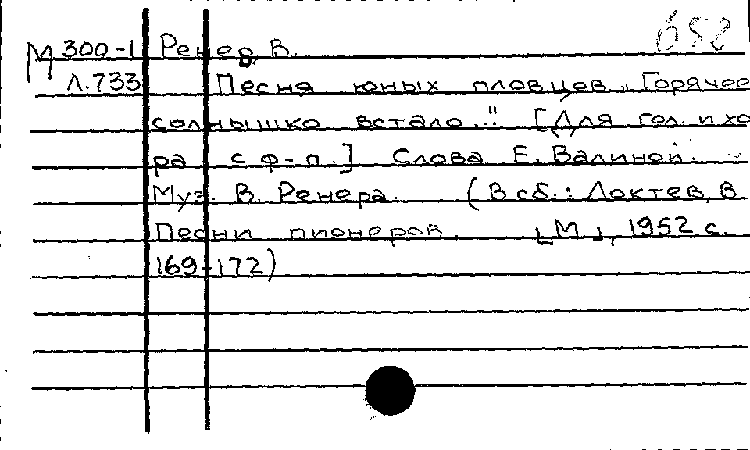 М 300-1 Ренев В. 652
Л.733 Песня юных пловцов "Горячее
солнышко встало." [Для гол. и хо
ра с ф-п.] Слова Е. Валиной.
Муз. В. Ренера. (В сб.: Локтев, В
Песни пионеров. [М], 1952 с.
169-172)